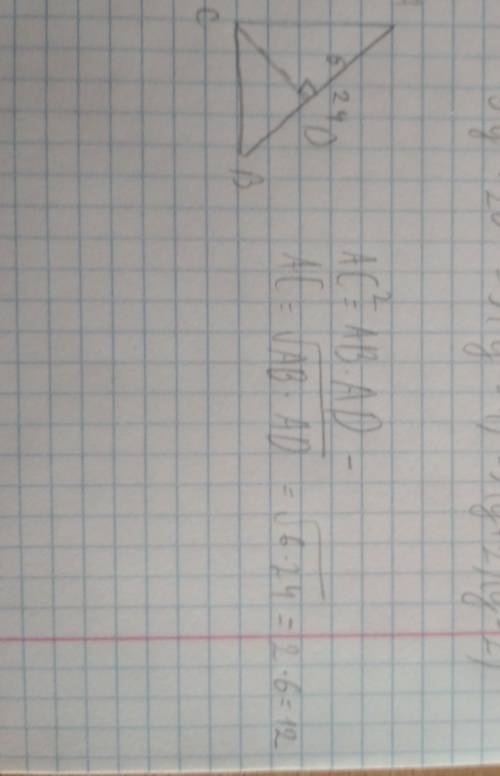 C
6
24
D
B
AC² = AB · AD -
AC = √AB · AD = √6·24 = 2·6=12